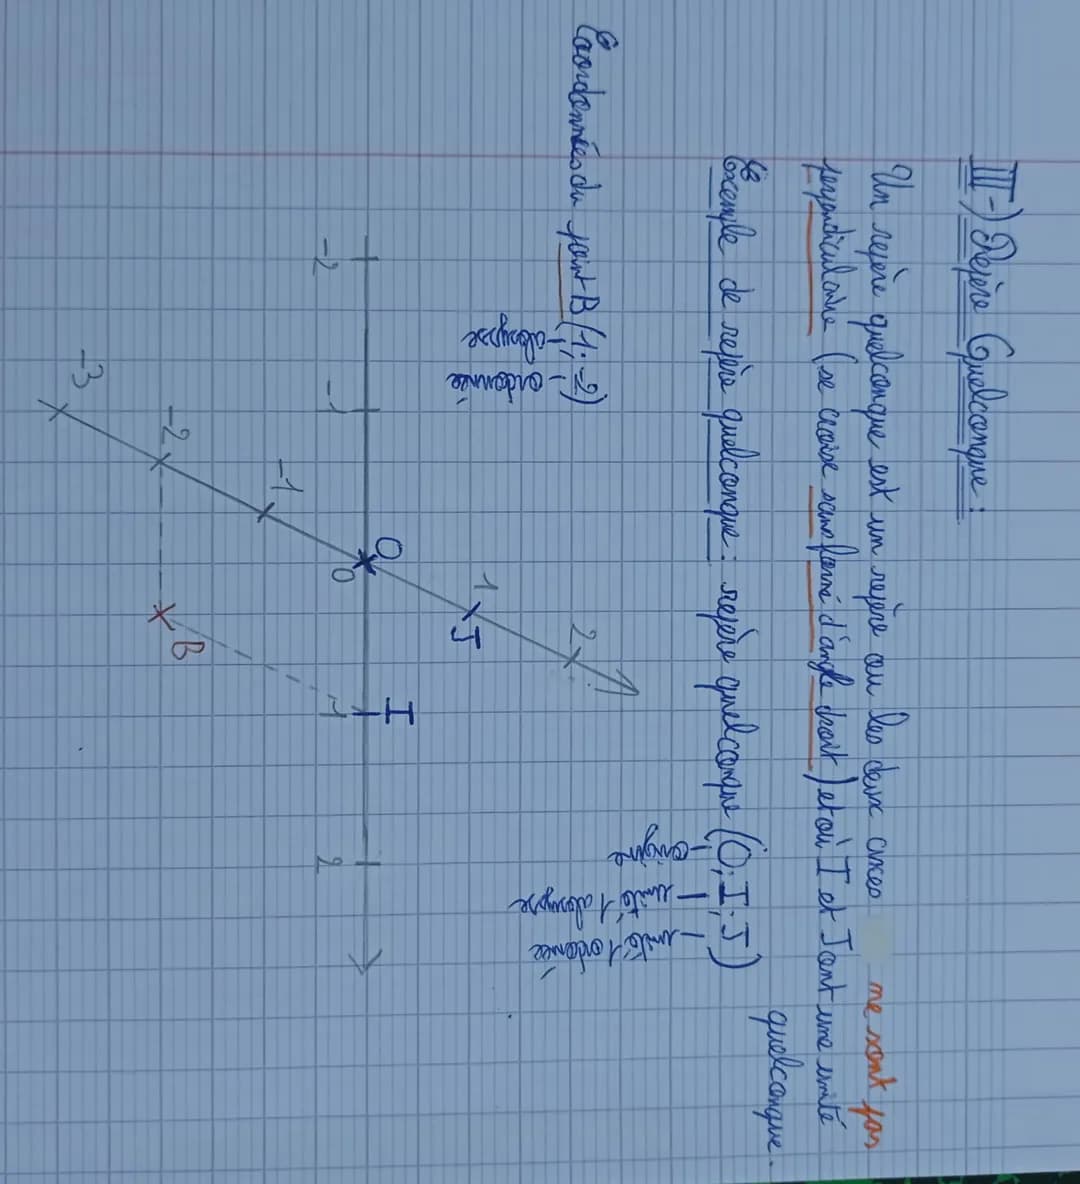 III-) Repère Quelconque :
Un repère quelconque est un repère ou les deux axes ne sont pas
perpendiculaire (se croise sans formé d'angle droit) et où I et J ont une unité
quelconque.
Exemple de repère quelconque : repère quelconque (O; I; J)
origine
unité 1 abscysse
unité 1 ordonnée
Coordonnées du point B (1; -2)
abscysse
ordonnée
2
1
J
O
I
-2
-1
0
1
2
-1
-2
B
-3